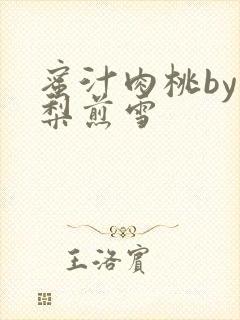 蜜汁肉桃by
梨煎雪
王洛宾